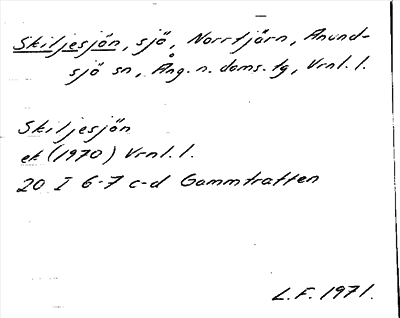 Skiljesjön, sjö, Norrtjärn, Anund-
sjö sn, Ång. n. doms. tg, Vrnl. l.
Skiljesjön
ek (1970) Vrnl. l.
20 I 6-7 c-d Gammtratten
L.F. 1971.